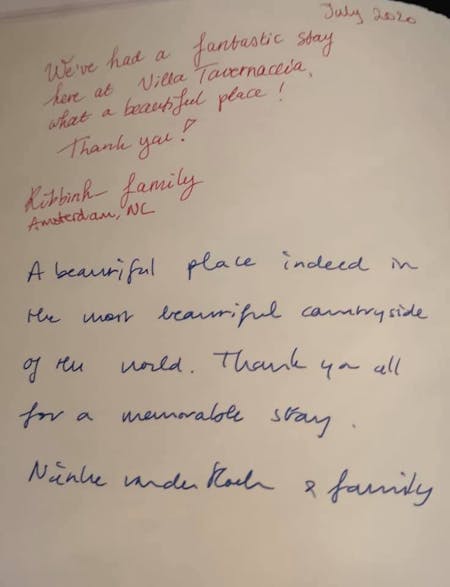 July 2020
We've had a fantastic stay
here at Villa Tavernaccia,
what a beautiful place!
Thank you!
family
Amsterdam, NL
A beautiful place indeed in
the most beautiful countryside
of the world. Thank you all
for a memorable stay.
& family